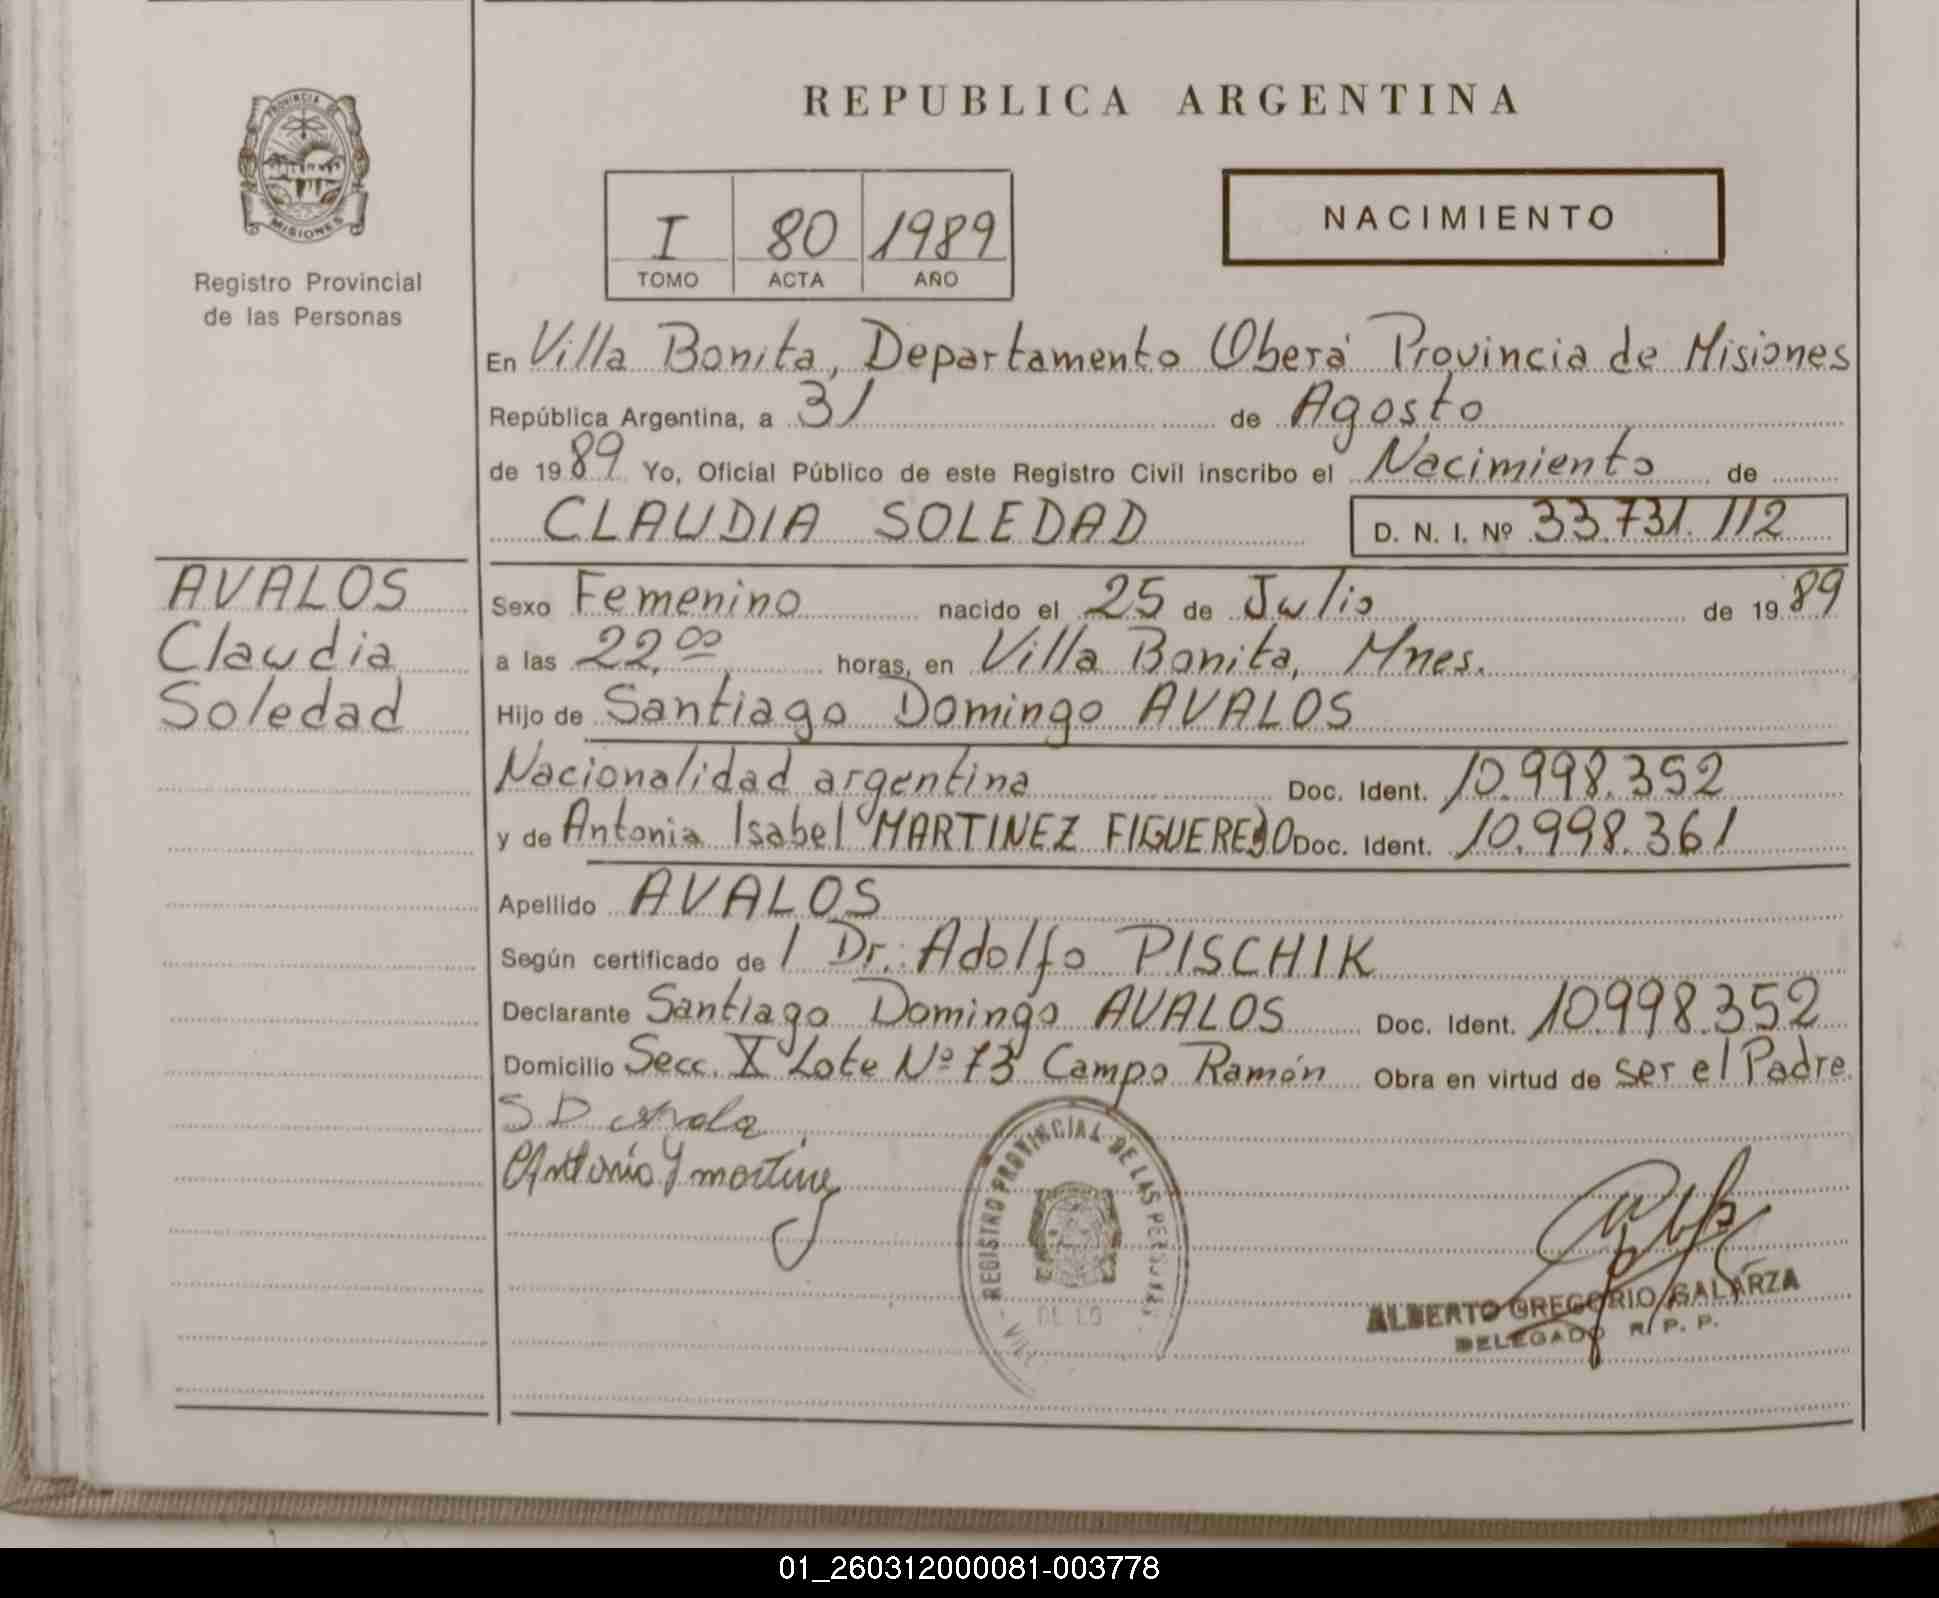 REPUBLICA ARGENTINA
PROVINCIA DE
MISIONES
Registro Provincial
de las Personas
I 80 1989
TOMO ACTA AÑO
NACIMIENTO
En Villa Bonita, Departamento Oberá Provincia de Misiones
República Argentina, a 31 de Agosto
de 1989 Yo, Oficial Público de este Registro Civil inscribo el Nacimiento de
CLAUDIA SOLEDAD D. N. I. Nº 33.731.112
AVALOS
Claudia
Soledad
Sexo Femenino nacido el 25 de Julio de 1989
a las 22,00 horas, en Villa Bonita, Mnes.
Hijo de Santiago Domingo AVALOS
Nacionalidad argentina Doc. Ident. 10.998.352
y de Antonia Isabel MARTINEZ FIGUEREDO Doc. Ident. 10.998.361
Apellido AVALOS
Según certificado de / Dr. Adolfo PISCHIK
Declarante Santiago Domingo AVALOS Doc. Ident. 10998.352
Domicilio Secc. X Lote Nº 73 Campo Ramón Obra en virtud de ser el Padre.
S D
Antonia Y martine
REGISTRO PROVINCIAL DE LAS PERSONAS
ALBERTO GREGORIO GALARZA
DELEGADO R. P. P.
01_260312000081-003778